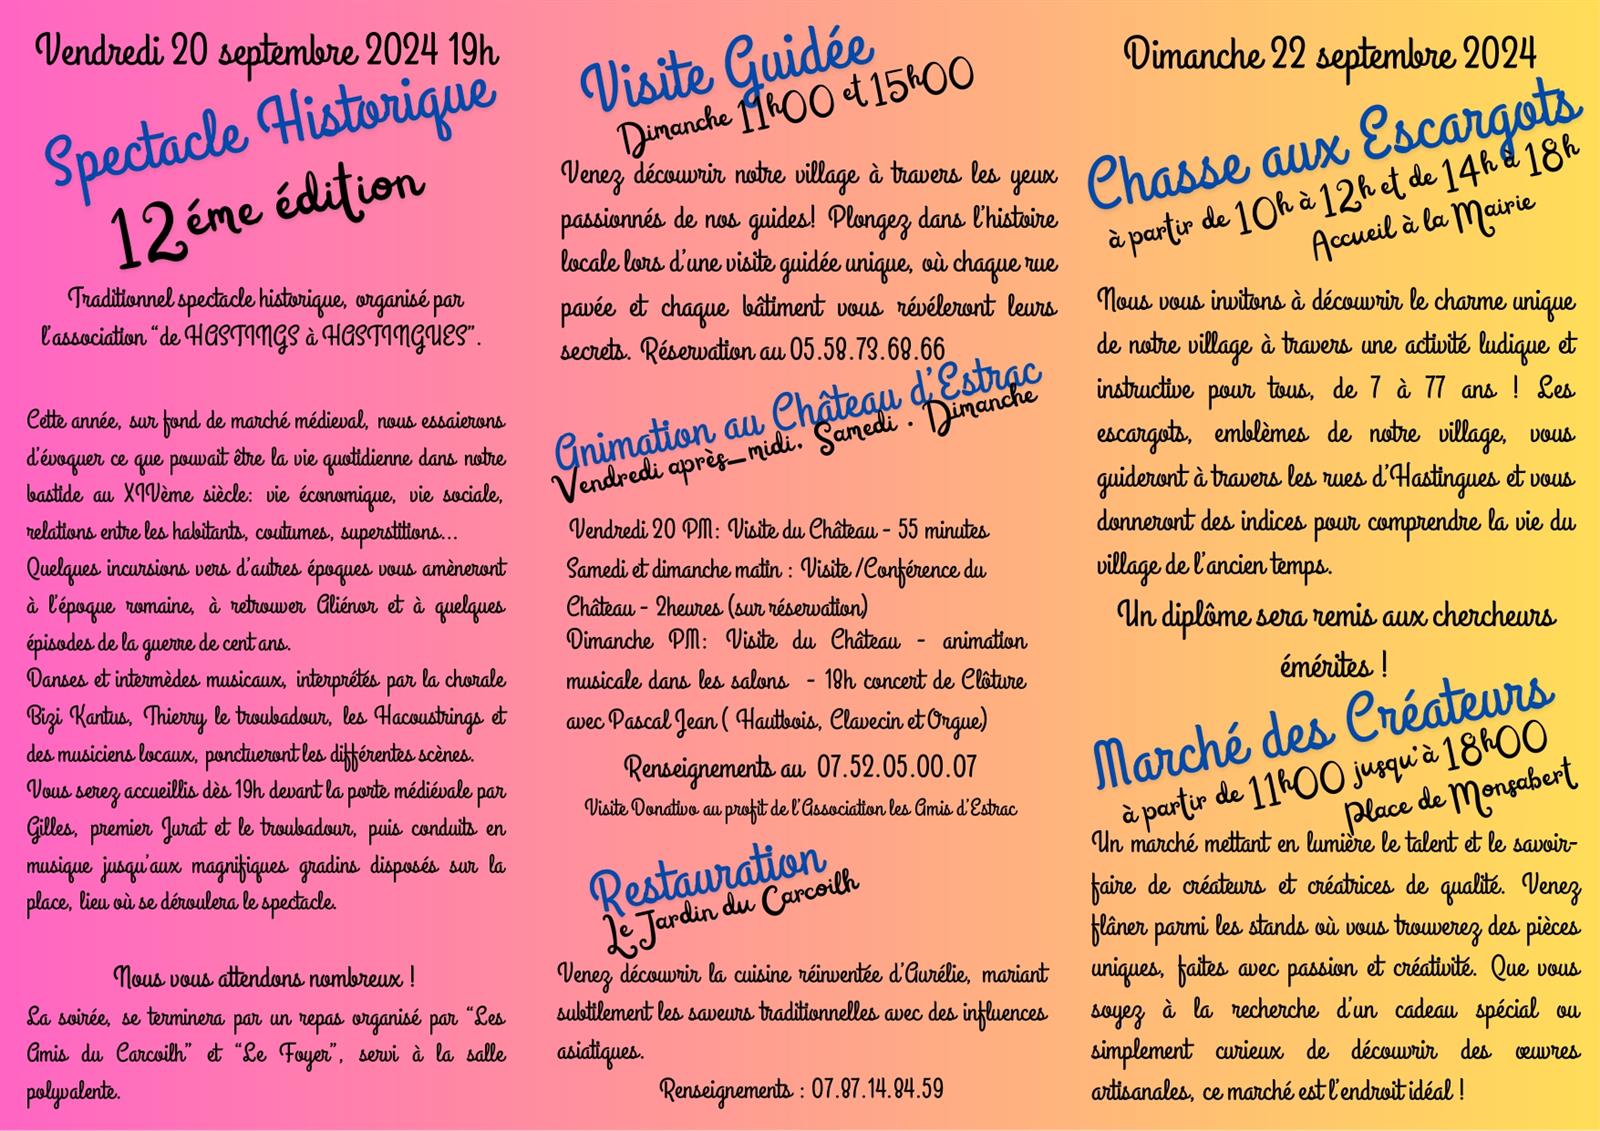 Vendredi 20 septembre 2024 19h
Spectacle Historique
12éme édition
Traditionnel spectacle historique, organisé par
l'association "de HASTINGS à HASTINGUES".
Cette année, sur fond de marché médieval, nous essaierons
d'évoquer ce que pouvait être la vie quotidienne dans notre
bastide au XIVème siècle: vie économique, vie sociale,
relations entre les habitants, coutumes, superstitions...
Quelques incursions vers d'autres époques vous amèneront
à l'époque romaine, à retrouver Aliénor et à quelques
épisodes de la guerre de cent ans.
Danses et intermèdes musicaux, interprétés par la chorale
Bizi Kantus, Thierry le troubadour, les Hacoustrings et
des musiciens locaux, ponctueront les différentes scènes.
Vous serez accueillis dès 19h devant la porte médiévale par
Gilles, premier Jurat et le troubadour, puis conduits en
musique jusqu'aux magnifiques gradins disposés sur la
place, lieu où se déroulera le spectacle.
Nous vous attendons nombreux !
La soirée, se terminera par un repas organisé par "Les
Amis du Carcoilh" et "Le Foyer", servi à la salle
polyvalente.
Visite Guidée
Dimanche 11h00 et 15h00
Venez découvrir notre village à travers les yeux
passionnés de nos guides! Plongez dans l'histoire
locale lors d'une visite guidée unique, où chaque rue
pavée et chaque bâtiment vous révéleront leurs
secrets. Réservation au 05.58.73.68.66
Animation au Château d'Estrac
Vendredi après-midi. Samedi . Dimanche
Vendredi 20 PM: Visite du Château - 55 minutes
Samedi et dimanche matin : Visite /Conférence du
Château - 2heures (sur réservation)
Dimanche PM: Visite du Château - animation
musicale dans les salons - 18h concert de Clôture
avec Pascal Jean ( Hautbois, Clavecin et Orgue)
Renseignements au 07.52.05.00.07
Visite Donativo au profit de l'Association les Amis d'Estrac
Restauration
Le Jardin du Carcoilh
Venez découvrir la cuisine réinventée d'Aurélie, mariant
subtilement les saveurs traditionnelles avec des influences
asiatiques.
Renseignements : 07.87.14.84.59
Dimanche 22 septembre 2024
Chasse aux Escargots
à partir de 10h à 12h et de 14h à 18h
Accueil à la Mairie
Nous vous invitons à découvrir le charme unique
de notre village à travers une activité ludique et
instructive pour tous, de 7 à 77 ans ! Les
escargots, emblèmes de notre village, vous
guideront à travers les rues d'Hastingues et vous
donneront des indices pour comprendre la vie du
village de l'ancien temps.
Un diplôme sera remis aux chercheurs
émérites !
Marché des Créateurs
à partir de 11h00 jusqu'à 18h00
Place de Monsabert
Un marché mettant en lumière le talent et le savoir-
faire de créateurs et créatrices de qualité. Venez
flâner parmi les stands où vous trouverez des pièces
uniques, faites avec passion et créativité. Que vous
soyez à la recherche d'un cadeau spécial ou
simplement curieux de découvrir des œuvres
artisanales, ce marché est l'endroit idéal !